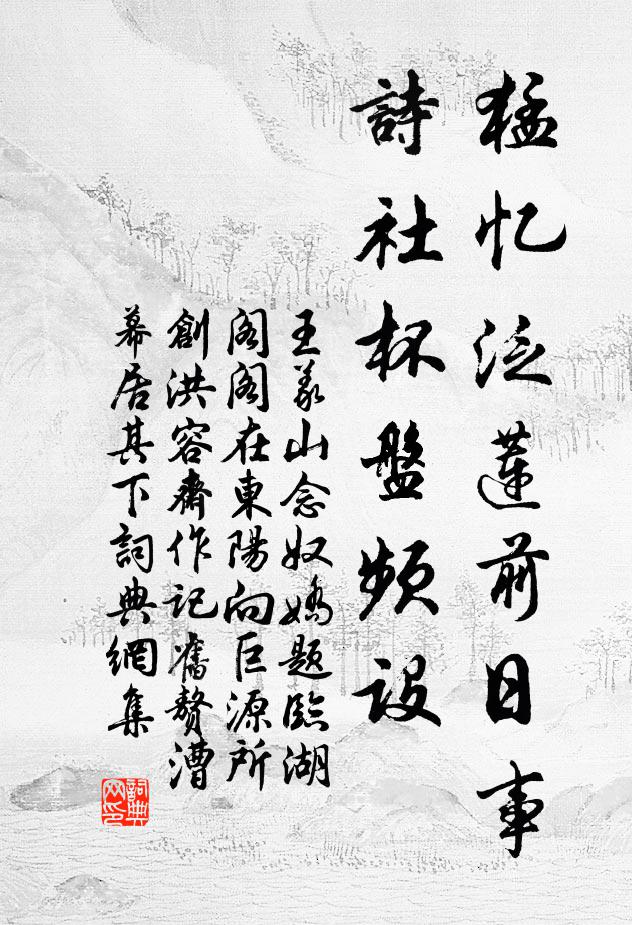 猛忆泛蓮前日事
詩社杯盤頻設
王义山念奴嬌題臨湖
閣閣在東陽向巨源所
創洪容齋作記舊贅漕
幕居其下詞典網集
詞典網印